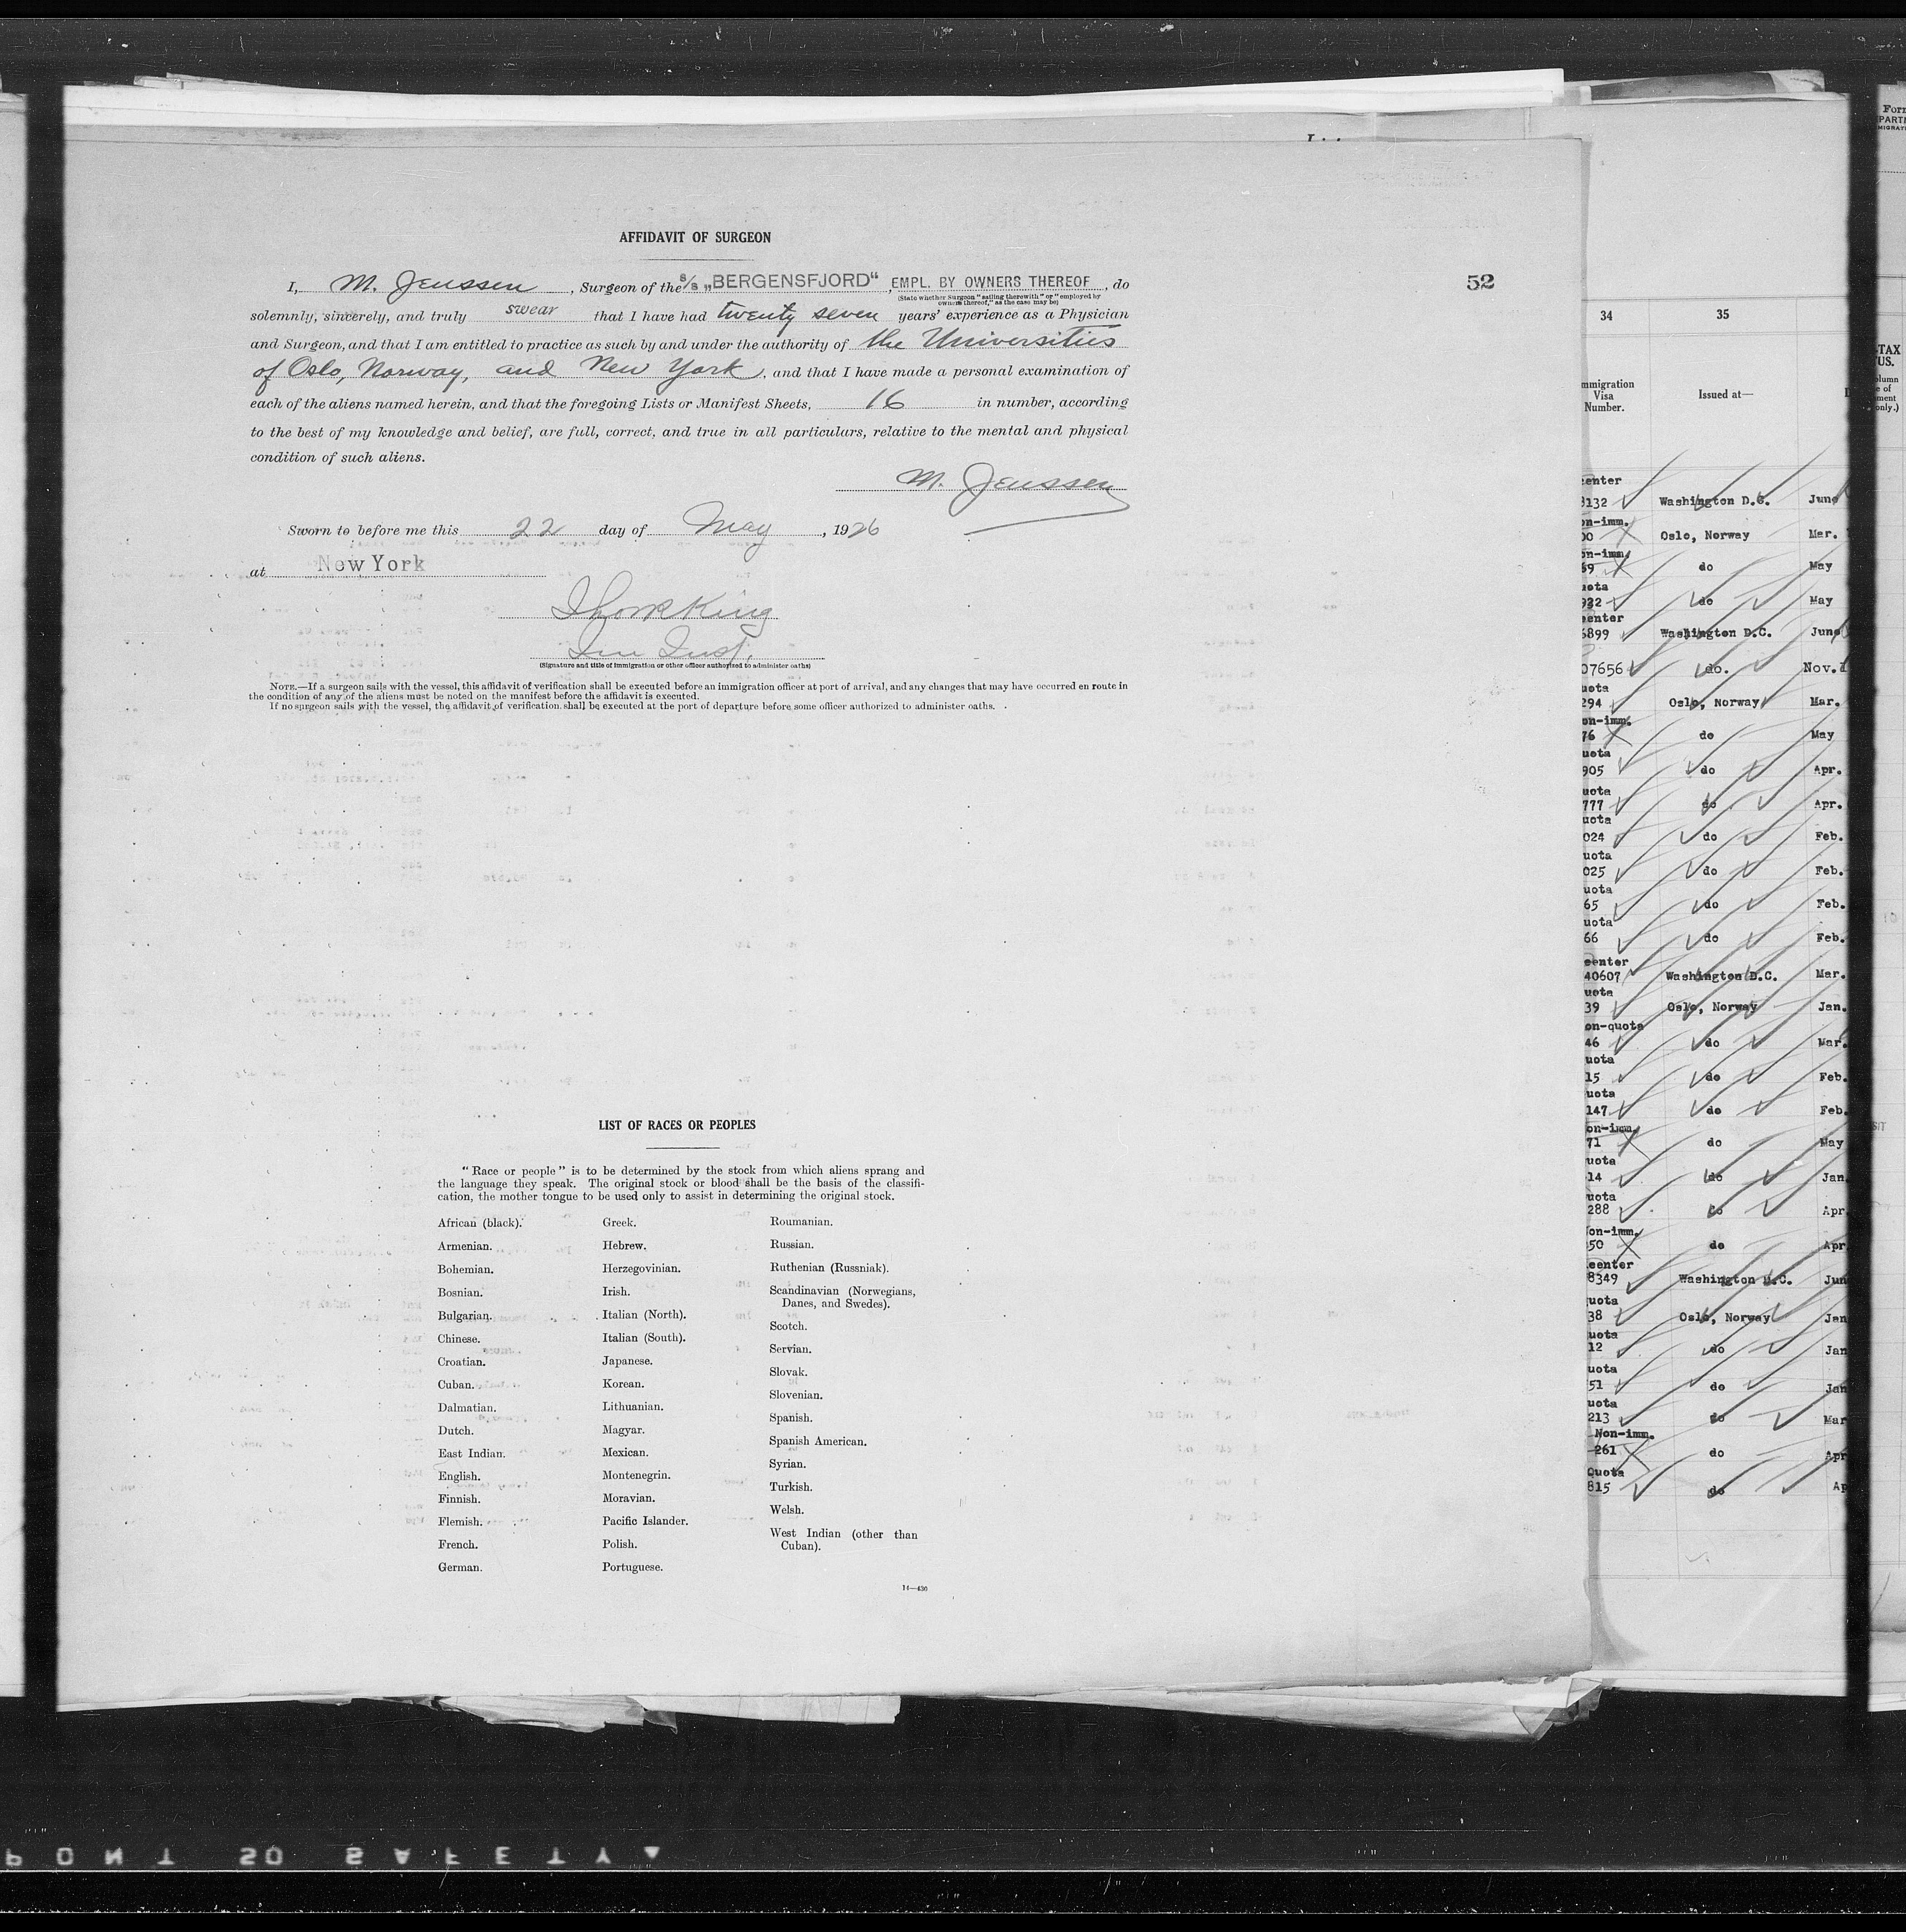 AFFIDAVIT OF SURGEON
I, M. Jenssen, Surgeon of the S/S „BERGENSFJORD“, EMPL. BY OWNERS THEREOF, do
(State whether Surgeon "sailing therewith" or "employed by
owners thereof," as the case may be)
solemnly, sincerely, and truly swear that I have had twenty seven years' experience as a Physician
and Surgeon, and that I am entitled to practice as such by and under the authority of the Universities
of Oslo, Norway, and New York, and that I have made a personal examination of
each of the aliens named herein, and that the foregoing Lists or Manifest Sheets, 16 in number, according
to the best of my knowledge and belief, are full, correct, and true in all particulars, relative to the mental and physical
condition of such aliens.
M. Jenssen
Sworn to before me this 22 day of May, 1926
at New York
King
(Signature and title of immigration or other officer authorized to administer oaths)
NOTE.—If a surgeon sails with the vessel, this affidavit of verification shall be executed before an immigration officer at port of arrival, and any changes that may have occurred en route in
the condition of any of the aliens must be noted on the manifest before the affidavit is executed.
If no surgeon sails with the vessel, the affidavit of verification shall be executed at the port of departure before some officer authorized to administer oaths.
52
LIST OF RACES OR PEOPLES
"Race or people" is to be determined by the stock from which aliens sprang and
the language they speak. The original stock or blood shall be the basis of the classifi-
cation, the mother tongue to be used only to assist in determining the original stock.
African (black).
Armenian.
Bohemian.
Bosnian.
Bulgarian.
Chinese.
Croatian.
Cuban.
Dalmatian.
Dutch.
East Indian.
English.
Finnish.
Flemish.
French.
German.
Greek.
Hebrew.
Herzegovinian.
Irish.
Italian (North).
Italian (South).
Japanese.
Korean.
Lithuanian.
Magyar.
Mexican.
Montenegrin.
Moravian.
Pacific Islander.
Polish.
Portuguese.
Roumanian.
Russian.
Ruthenian (Russniak).
Scandinavian (Norwegians,
Danes, and Swedes).
Scotch.
Servian.
Slovak.
Slovenian.
Spanish.
Spanish American.
Syrian.
Turkish.
Welsh.
West Indian (other than
Cuban).
14—430
34 35
mmigration
Visa
Number.
Issued at—
enter
8132 Washington D.C. June
on-imm.
00 Oslo, Norway Mar.
on-imm.
69 do May
uota
922 do May
eenter
6899 Washington D.C. June
07656 do. Nov.
uota
294 Oslo, Norway Mar.
on-imm.
76 do May
uota
905 do Apr.
uota
777 do Apr.
uota
024 do Feb.
uota
025 do Feb.
uota
65 do Feb.
uota
66 do Feb.
eenter
40607 Washington D.C. Mar.
uota
39 Oslo, Norway Jan.
on-quota
46 do Mar.
uota
15 do Feb.
uota
147 do Feb.
on-imm.
71 do May
uota
14 do Jan.
uota
288 do Apr.
on-imm.
50 do Apr
eenter
8349 Washington D.C. Jun
uota
38 Oslo, Norway Jan
uota
12 do Jan
uota
51 do Jan
uota
213 do Mar
Non-imm.
261 do Apr
Quota
815 do Ap